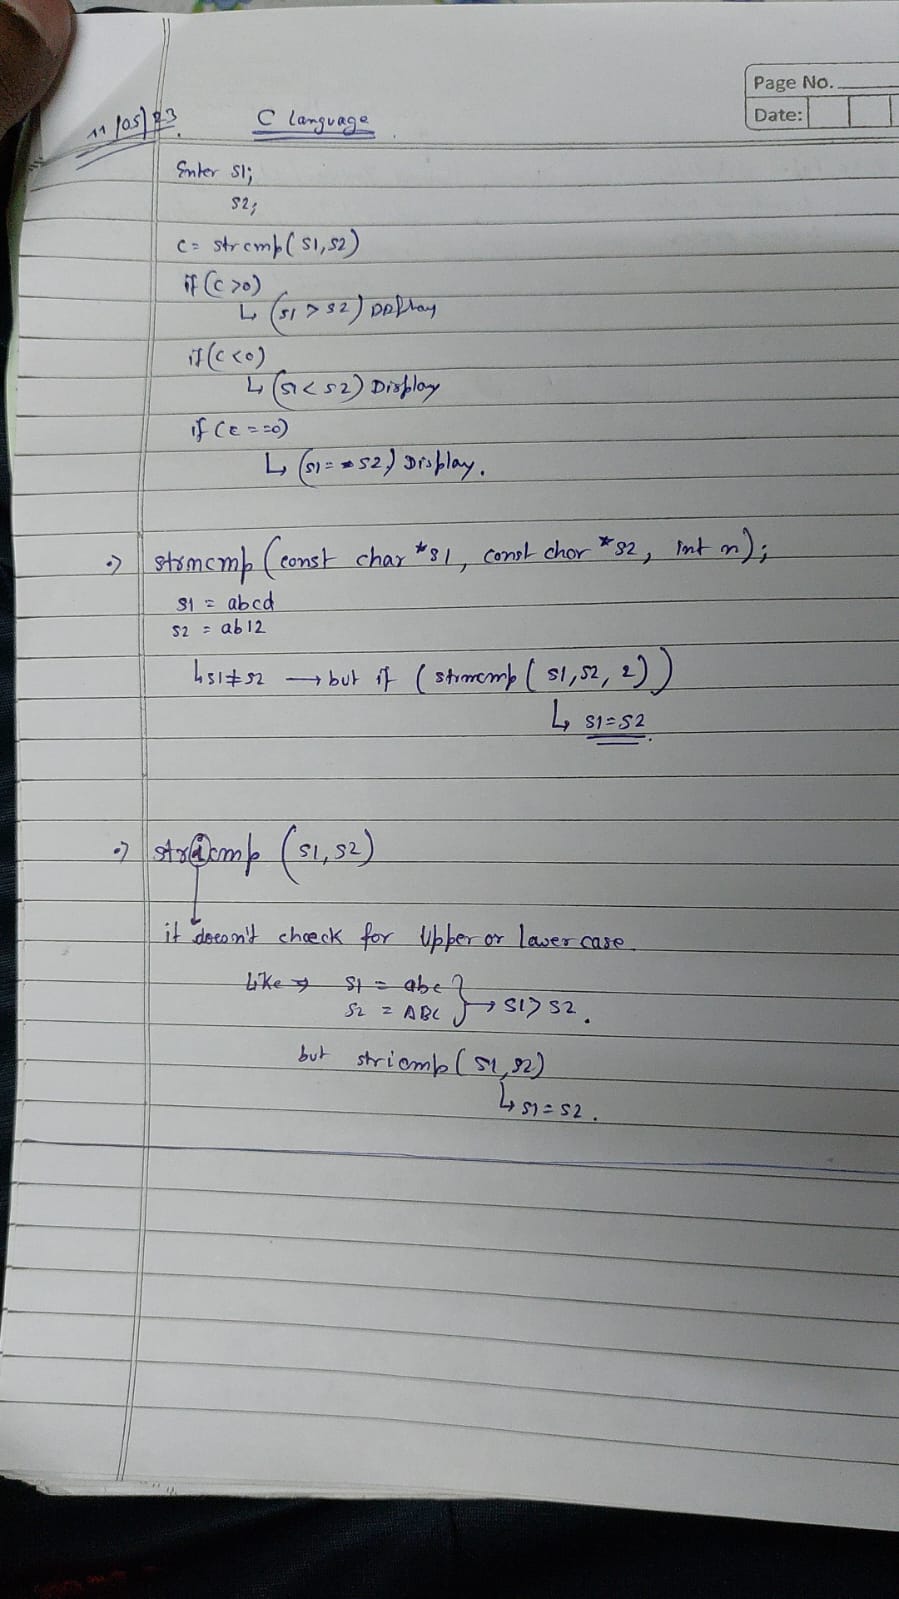 Page No.
Date:
11/05/23
C language
Enter S1;
S2;
C = strcmp(S1,S2)
if (C>0)
↳ (S1 > S2) Display
if (C<0)
↳ (S1 < S2) Display
if (C==0)
↳ (S1 == S2) Display.
⇒ strncmp (const char *S1, const char *S2, int n);
S1 = abcd
S2 = ab12
↳ S1 ≠ S2 → but if (strncmp (S1,S2, 2))
↳ S1=S2.
⇒ stricmp (S1,S2)
it doesn't check for Upper or lower case.
Like → S1 = abc
S2 = ABC } → S1 > S2.
but stricmp (S1,S2)
↳ S1=S2.